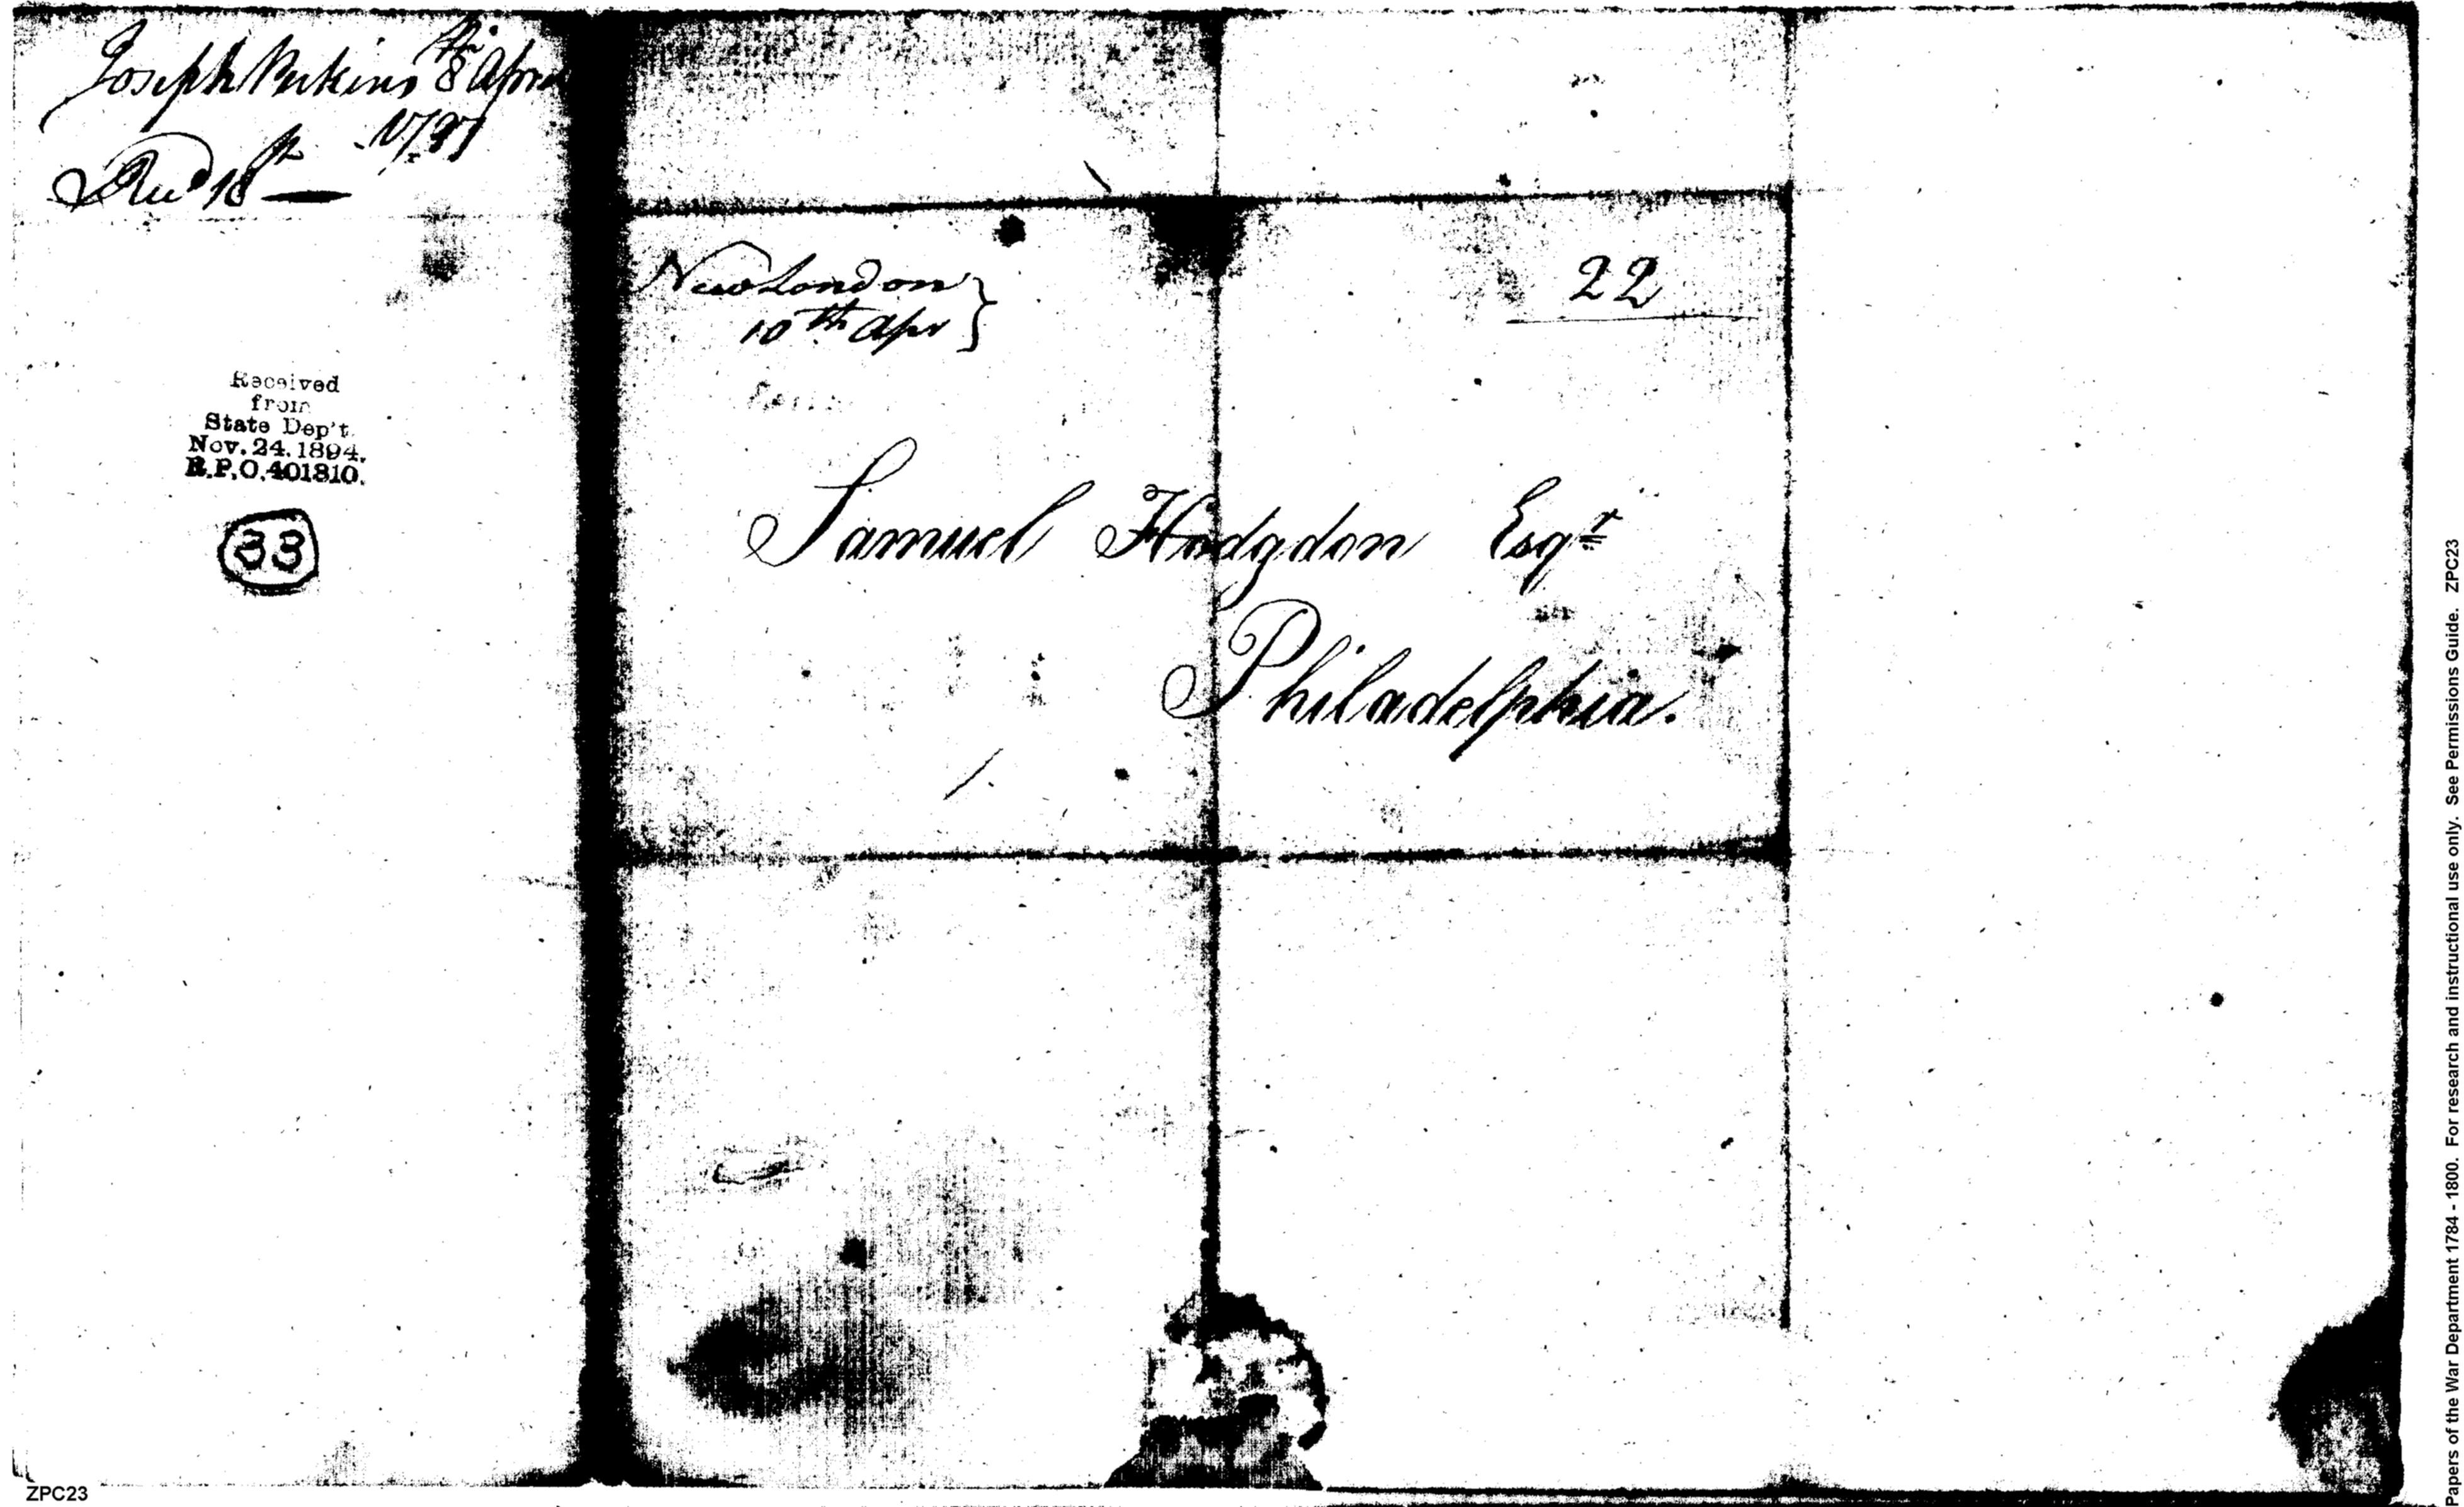 Joseph Perkins 8th April
1797
Recd 18th
Received
from
State Dep't.
Nov. 24. 1894.
R.P.O. 401810.
33
New London }
10th Apr
22
Samuel Hodgdon Esqr
Philadelphia.
ZPC23
Papers of the War Department 1784 - 1800. For research and instructional use only. See Permissions Guide. ZPC23